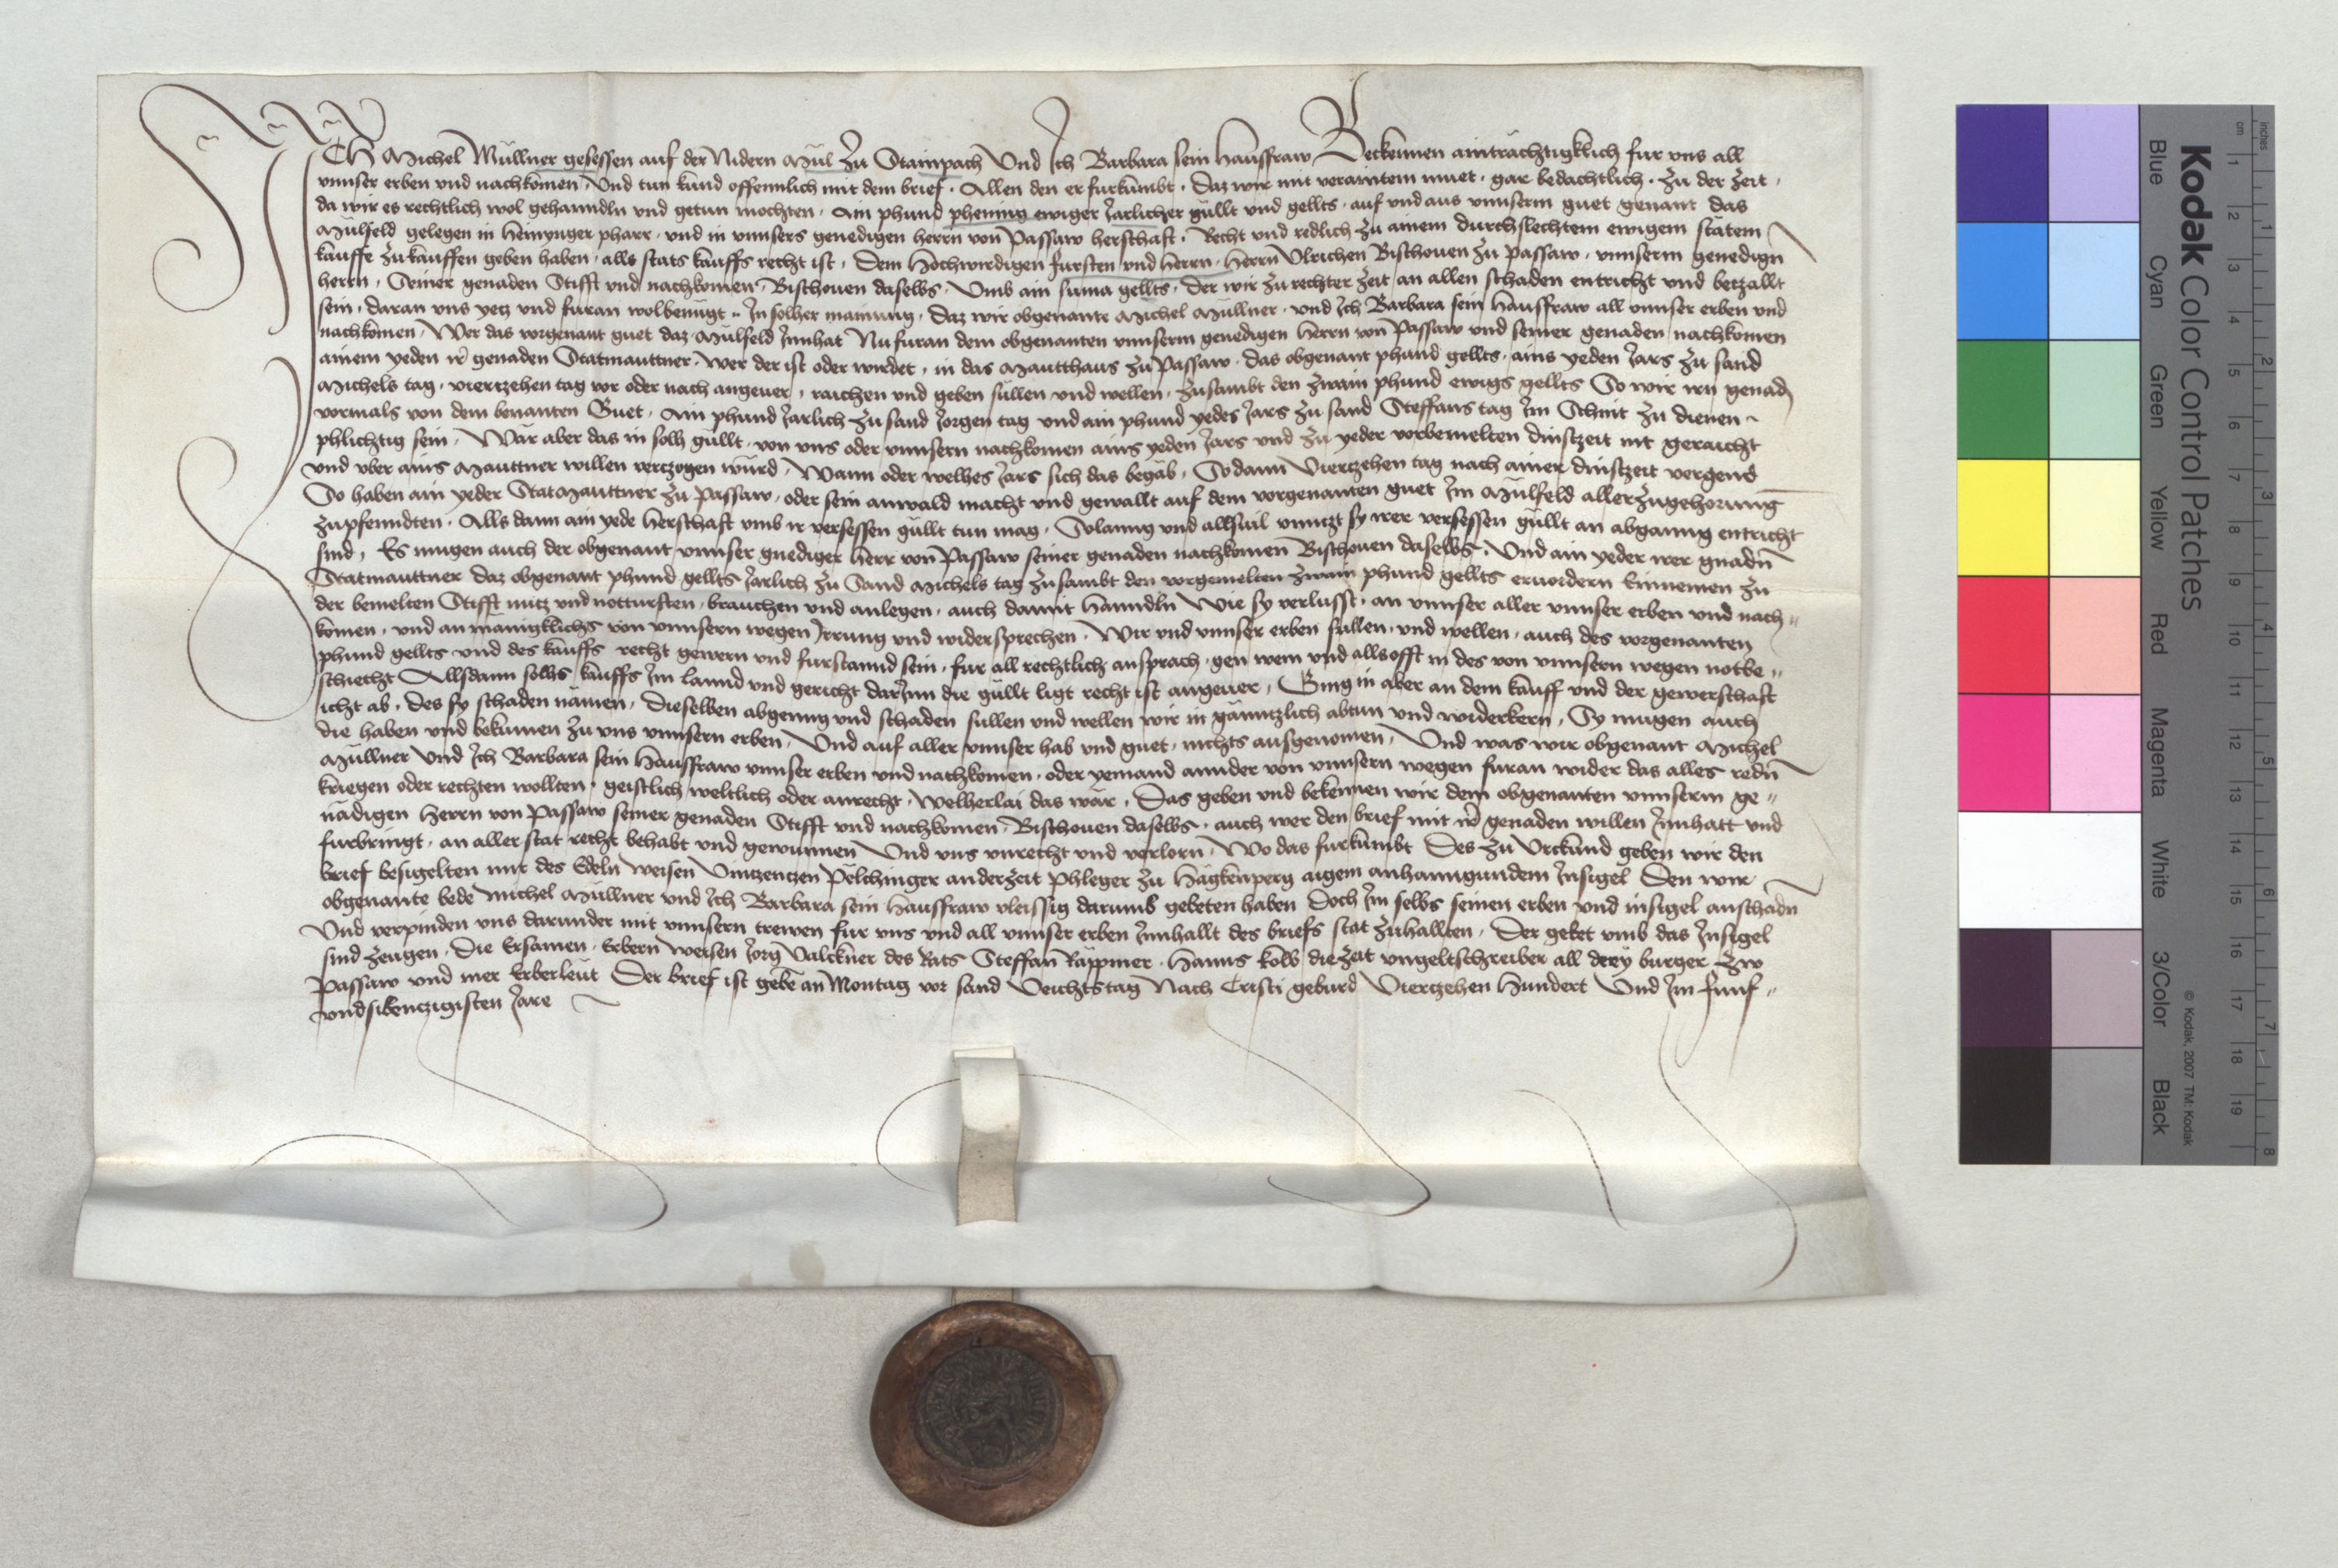 ICH Michel Müllner gesessen auf der Nidern Mül zu Stainpach Und Ich Barbara sein hausfraw Bekennen ainträchtigklich fur vns all
vnnser erben vnd nachkomen Und tun kund offennlich mit dem brief Allen den er furkumbt Daz wir mit veraintem muet gar bedachtlich zu der zeit
da wir es rechtlich wol gehanndln vnd getun mochten Ain phund phening ewiger Jarlicher güllt vnd gellts auf vnd aus vnnserm guet genant das
Mülfeld gelegen in heinynger pharr vnd in vnnsers genedigen herrn von Passaw herschaft Recht vnd redlich zu ainem durchslechtem ewigem stätem
kauffe zukauffen geben haben alls stats kauffs recht ist Dem hochwirdigen fursten vnd herrn herrn Vlrichen Bischouen zu passaw vnnserm genedign
herrn Seiner genaden Stifft vnd nachkomen Bischouen daselbs Vmb ain suma gellts der wir zu rechter zeit an allen schaden entricht vnd betzallt
sein daran vns yetz vnd furan wolbenügt In solher mainung Daz wir obgenante Michel Müllner vnd Ich Barbara sein hausfraw all vnnser erben vnd
nachkomen Wer das vorgenant guet daz Mülfeld Innhat Nu furan dem obgenanten vnnserm genedigen herrn von Passaw vnd seiner genaden nachkomen
ainem yeden ir genaden Statmauttner wer der ist oder wirdet in das Mautthaus zu Passaw das obgenant phund gellts ains yeden Jars zu sand
Michels tag viertzehen tag vor oder nach angeuer raichen vnd geben süllen vnd wellen zusambt den zwain phund ewigs gellts So wir irn genad
vormals von dem benanten Guet Ain phund Jarlich zu sand Jorgen tag vnd ain phund yedes Jars zu sand Steffans tag Im Schnit zu dienen
phlichtig sein Wär aber das in solh güllt von vns oder vnnsern nachkomen ains yeden Jars vnd zu yeder vorbemelten dinstzeit nit geraicht
vnd vber ains Mauttner willen vertzogen würd Wann oder welhes Jars sich das begäb So dann Viertzehen tag nach ainer dinstzeit vergend
So haben ain yeder StatMauttner zu Passaw oder sein anwald macht vnd gewallt auf dem vorgenanten guet Im Mülfeld aller zugehorung
zupfenndten Alls dann ain yede herschaft vmb ir versessen güllt tun mag Solanng vnd allsuil vnntzt sy irer versessen güllt an abganng entricht
sind Es mugen auch der obgenant vnnser gnediger herr von Passaw seiner genaden nachkomen Bischouen daselbs Und ain yeder irer gnadn
Statmauttner daz obgenant phund gellts Jarlich zu Sand Michels tag zusambt den vorgemelten zwain phund gellts eruordern Einnemen zu
der bemelten Stifft nutz vnd notturften brauchen vnd anlegen auch damit hanndln Wie sy verlusst an vnnser aller vnnser erben vnd nach
komen vnd an mänigklichs von vnnsern wegen Irrung vnd widersprechen Wir vnd vnnser erben sullen vnd wellen auch des vorgenanten
phund gellts vnd des kauffs recht gewern vnd furstannd sein fur all rechtlich ansprach gen wem vnd allsofft in des von vnnsern wegen notbe
schiecht Allsdann solhs kauffs Im lannd vnd gericht darInn die güllt ligt recht ist angeuer Ging in aber an dem kauff vnd der gewerschaft
icht ab des sy schaden nämen Dieselben abgenng vnd schaden sullen vnd wellen wir in gänntzlich abtun vnd widerkern Sy mugen auch
die haben vnd bekumen zu vns vnnsern erben Und auf aller vnnser hab vnd guet nichts ausgenomen Und was wir obgenant Michel
Müllner Und Ich Barbara sein hausfraw vnnser erben vnd nachkomen oder yemand annder von vnnsern wegen furan wider das alles redn
kriegen oder rechten wollten geistlich weltlich oder anrecht Welherlai das wär Das geben vnd bekennen wir dem obgenanten vnnserm ge
nädigen herrn von Passaw seiner genaden Stifft vnd nachkomen Bischouen daselbs auch wer den brief mit ir genaden willen Innhatt vnd
furbringt an aller stat recht behabt vnd gewunnen Und vns vnrecht vnd verlorn Wo das furkumbt Des zu Vrckund geben wir den
brief besigelten mit des Edeln weisen Vintzentzen Pelchinger anderzeit Phleger zu hägkenperg aigem anhanngundem Insigel Den wir
obgenante bede Michel Müllner vnd Ich Barbara sein hausfraw vleissig darumb gebeten haben Doch Im selbs seinen erben vnd insigel anschadn
Und verpinden vns darunder mit vnnsern trewen fur vns vnd all vnnser erben Innhallt des briefs stat zuhallten Der gebet vmb das Insigel
sind zeugen Die Ersamen Erbern weisen Jorg Valckner des Rats Steffan Räppner Hanns kolb diezeit vngeltschreiber all drey burger zw
Passaw vnd mer Erberleüt Der brief ist geben an Montag vor sand Veichtstag Nach Cristi geburd Viertzehen Hundert Und Im funf
vndsibentzigisten Jare
Kodak Color Control Patches
Blue Cyan Green Yellow Red Magenta White 3/Color Black
© Kodak, 2007 TM: Kodak
cm 1 2 3 4 5 6 7 8 9 10 11 12 13 14 15 16 17 18 19
inches 1 2 3 4 5 6 7 8